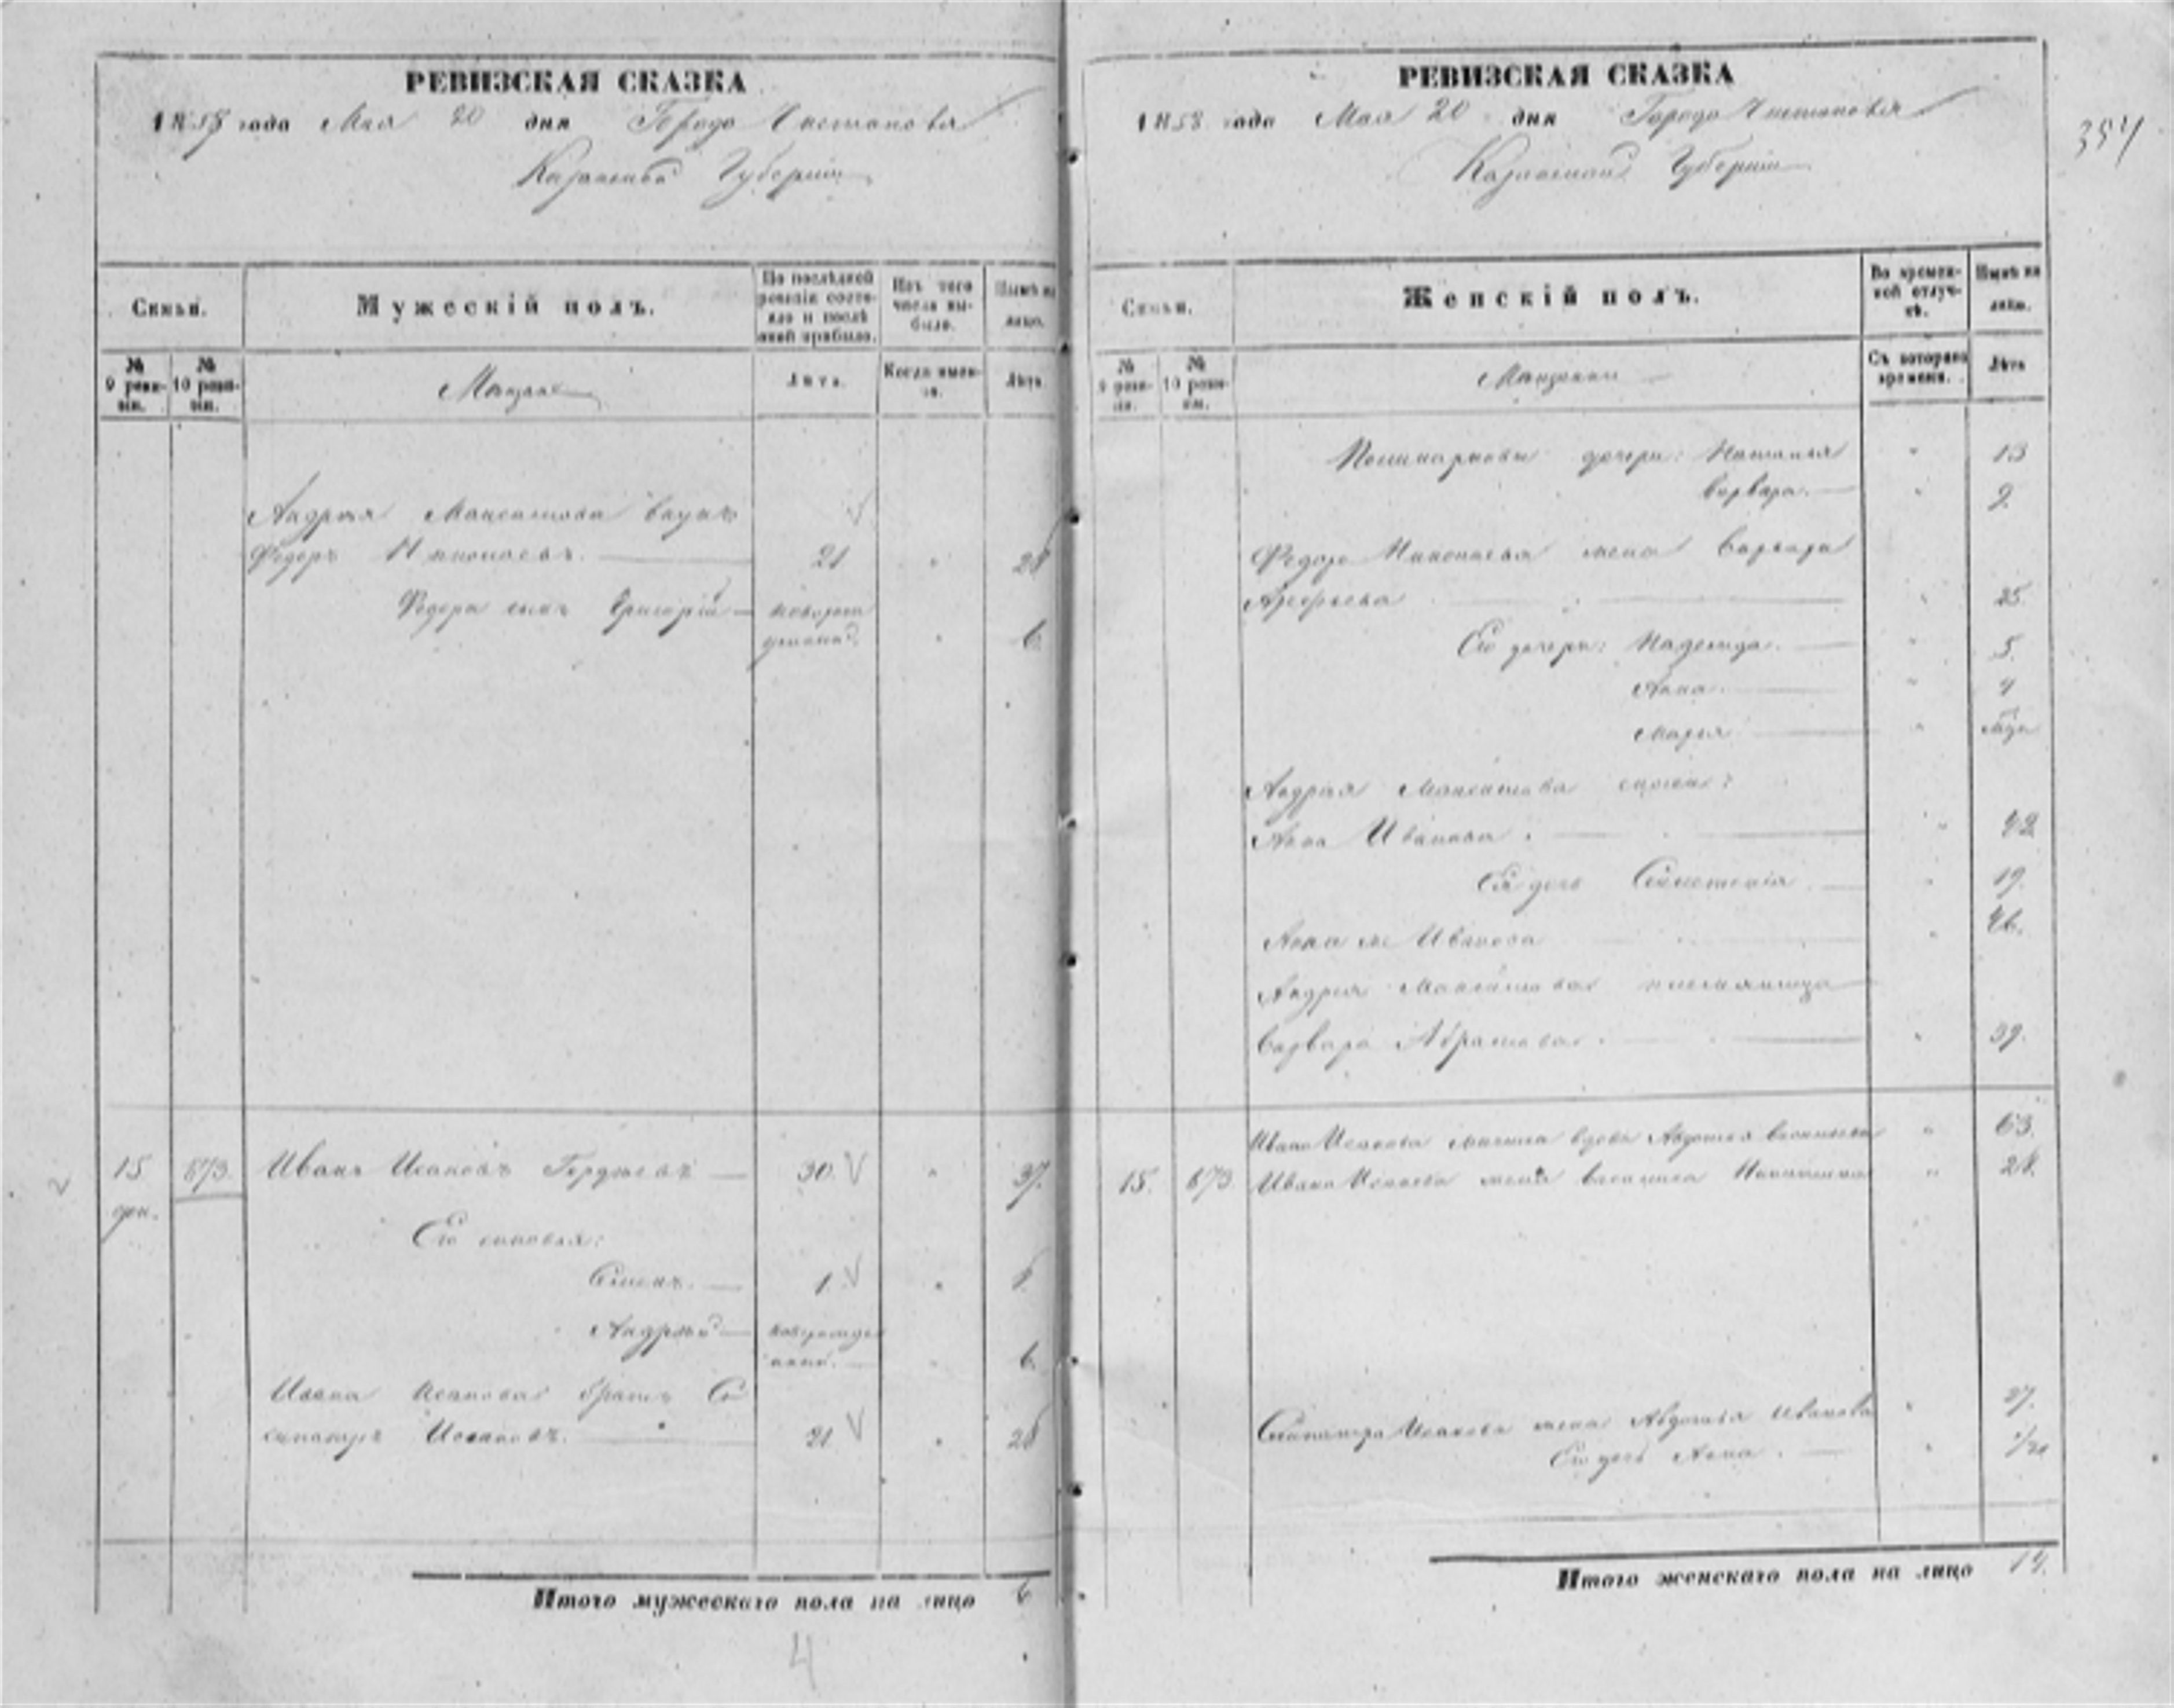 РЕВИЗСКАЯ СКАЗКА
1858 года Мая 20 дня Города Чистополя
Казанской Губерніи
Семьи.
Мужескій полъ.
По послѣдней ревизіи состояло и послѣ оной прибыло.
Изъ того числа выбыло.
Нынѣ на лицо.
№ 9 ревизіи.
№ 10 ревизіи.
Мѣщане
Лѣта.
Когда именно.
Лѣта.
Андрея Максимова внукъ
Федоръ 21 28
Федора сынъ Григорій новорожденной 6
15 673 Иванъ Исаковъ 30 37.
Его сыновья:
Семенъ. 1
Андрей новорожденный. 6
Ивана Исакова братъ
Исаковъ. 21 28
Итого мужескаго пола на лицо 6
4
РЕВИЗСКАЯ СКАЗКА
1858 года Мая 20 дня Города Чистополя
Казанской Губерніи
354
Семьи.
Женскій полъ.
Во временной отлучкѣ.
Нынѣ на лицо.
№ 9 ревизіи.
№ 10 ревизіи.
Мѣщанки
Съ котораго времени.
Лѣта
дочери: Наталья 13
Варвара. 9
Федора жена Варвара
25
Его дочери: Надежда. 5.
Анна. 4
Марья
Андрея Максимова снохи:
Анна Иванова. 42
Ея дочь 19.
Анна же Иванова 46.
Андрея Максимова племянница
Варвара Абрамова. 39.
Ивана Исакова мачиха вдова Авдотья 63.
15. 673 Ивана Исакова жена Василиса 28.
Исакова жена Авдотья Иванова 27.
Его дочь Анна.
Итого женскаго пола на лицо 14.